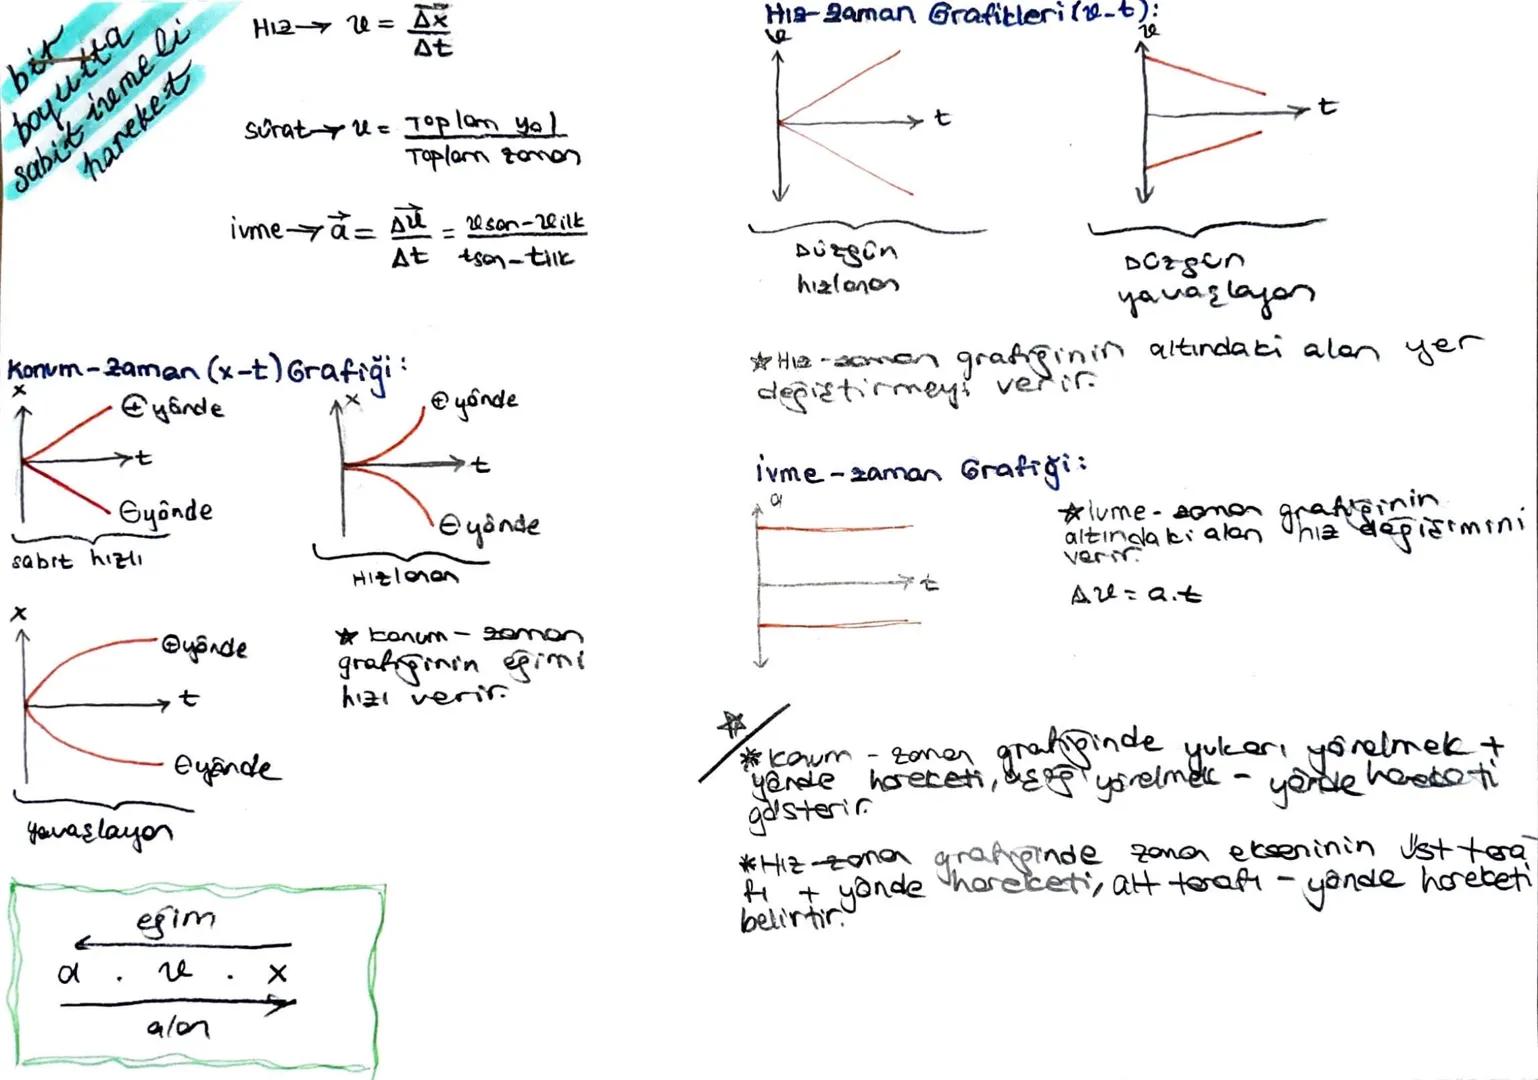 bir
boyutta
sabit ivmeli
hareket
Hız → v = Δx / Δt
sürat → v = Toplam yol / Toplam zaman
ivme → a = Δv / Δt = vson-vilk / tson-tilk
Konum-zaman (x-t) Grafiği:
x
⊕ yönde
t
⊖ yönde
sabit hızlı
x
⊕ yönde
t
⊖ yönde
Hızlanan
x
⊕ yönde
t
⊖ yönde
yavaşlayan
* konum - zaman
grafiğinin eğimi
hızı verir.
eğim
a . v . x
alan
Hız-zaman Grafikleri (v-t):
v
t
Düzgün
hızlanan
v
t
Düzgün
yavaşlayan
* Hız-zaman grafiğinin altındaki alan yer
değiştirmeyi verir.
İvme-zaman Grafiği:
a
t
* İvme-zaman grafiğinin
altındaki alan hız değişimini
verir.
Δv = a.t
* konum - zaman grafiğinde yukarı yönelmek +
yönde hareketi, aşağı yönelmek - yönde hareketi
gösterir.
* Hız-zaman grafiğinde zaman ekseninin üst tara
fı + yönde hareketi, alt tarafı - yönde hareketi
belirtir.